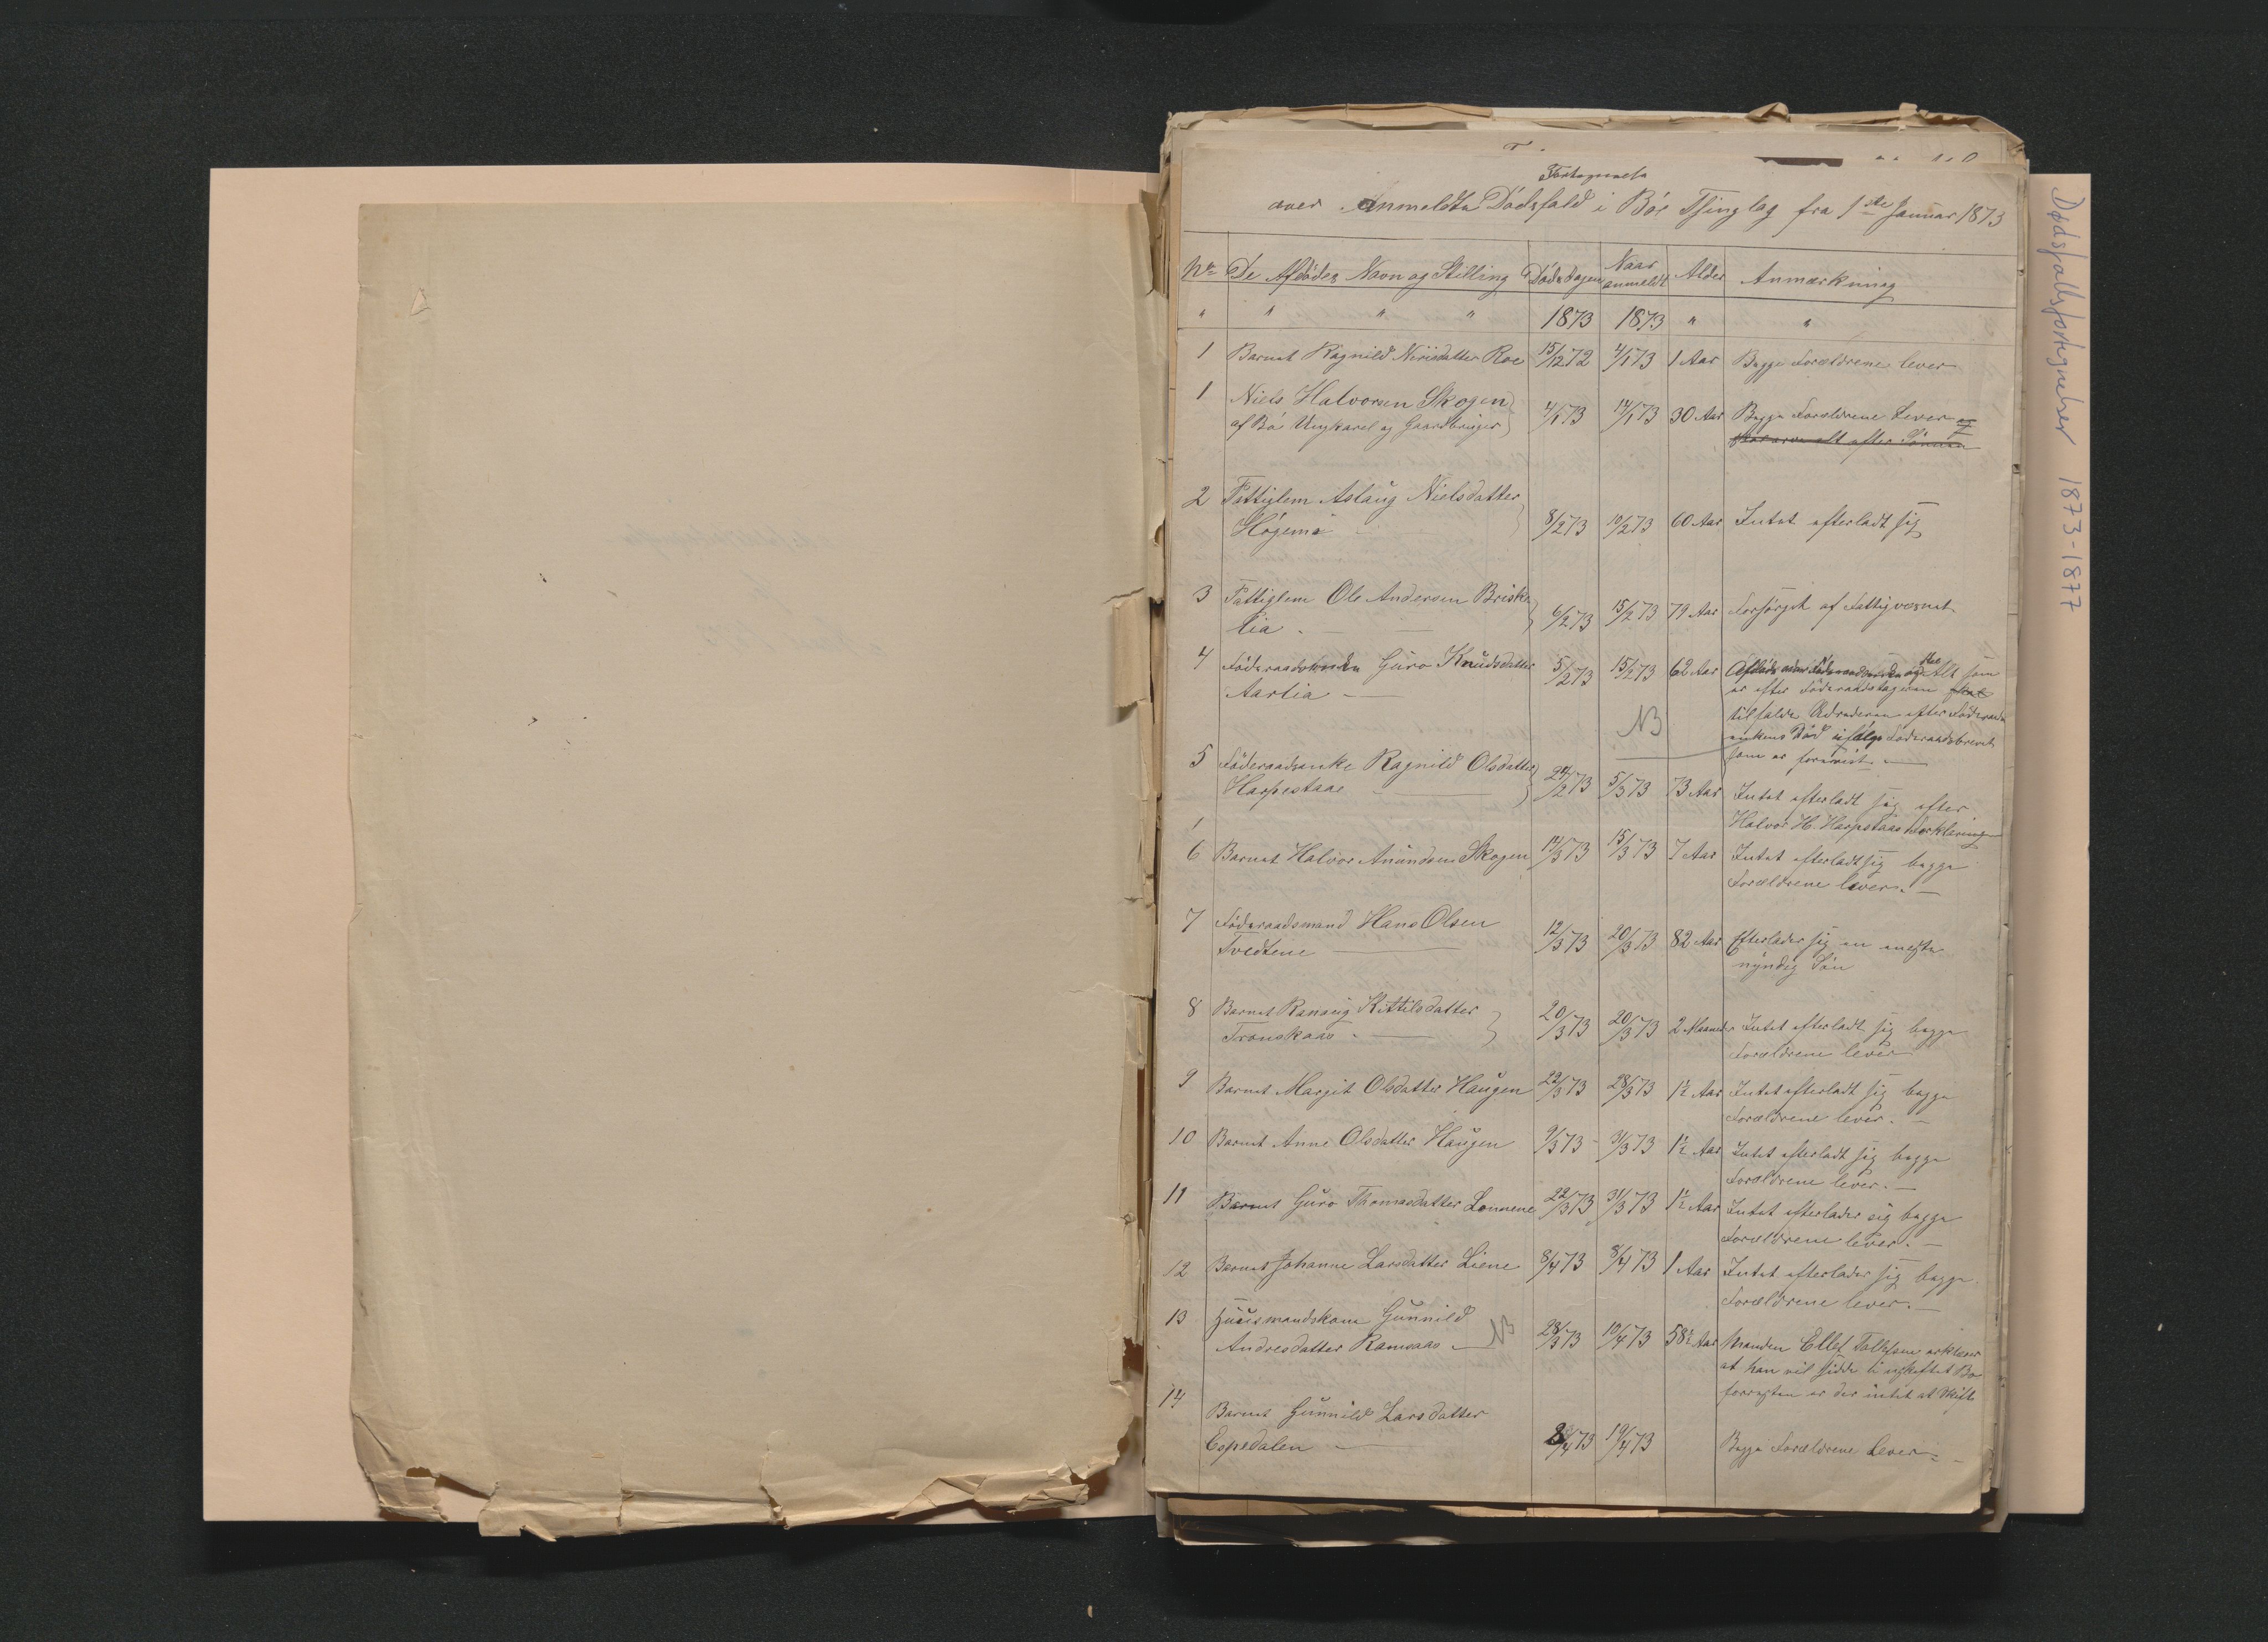 Fortegnelse
over Anmeldte Dödsfald i Böe Thinglag fra 1ste Januar 1873
No De Afdödes Navn og Stilling Dödsdagen Naar anmeldt Alder Anmærkning
" " " " 1873 1873 " "
1 Barnet Ragnild Nirisdatter Roe 15/12 72 4/1 73 1 Aar Begge Forældrene lever
1 Niels Halvorsen Skogen 4/1 73 14/1 73 30 Aar Begge Forældrene Lever og
af Bö Ungkarel og Gaardbruger skal arve alt efter Sönnen
2 Fattiglem Aslaug Nielsdatter
Högemo 8/2 73 10/2 73 60 Aar Intet efterladt sig
3 Fattiglem Ole Andersen Briske
lia 6/2 73 15/2 73 79 Aar Forsörget af Fattigvæsnet
4 Föderaadsenken Guro Knudsdatter 5/2 73 15/2 73 62 Aar Skal Alt som
Aarlia er efter Föderaadstageren skal
NB tilfalde Udrederen efter Föderaads
enkens Död ifölge Föderaadsbrevet
som er forevist
5 Föderaadsenke Ragnild Olsdatter 24/2 73 5/3 73 73 Aar Intet efterladt sig efter
Harpestaae Halvor H. Harpstaas Forklaring
6 Barnet Halvor Anundsen Skogen 14/3 73 15/3 73 7 Aar Intet efterladt sig begge
Forældrene lever.
7 Föderaadsmand Hans Olsen 12/3 73 20/3 73 82 Aar Efterlader sig en eneste
Tvedtene myndig Sön
8 Barnet Ranveig Kittilsdatter 20/3 73 20/3 73 2 Maaneder Intet efterladt sig begge
Tronskaas Forældrene lever
9 Barnet Margit Olsdatter Haugen 22/3 73 28/3 73 1½ Aar Intet efterladt sig begge
Forældrene lever.
10 Barnet Anne Olsdatter Haugen 9/3 73 31/3 73 1½ Aar Intet efterladt sig begge
Forældrene lever.
11 Barnet Guro Thomasdatter Lonnene 22/3 73 31/3 73 1½ Aar Intet efterlader sig begge
Forældrene lever.
12 Barnet Johanne Larsdatter Liene 8/4 73 8/4 73 1 Aar Intet efterlader sig begge
Forældrene lever.
13 Huusmandskone Gunnild NB 28/3 73 10/4 73 58½ Aar Manden Ellef Tollefsen erklærer
Andresdatter Ramsaas at han vil sidde i uskiftet Bo
forresten er der intet at Skifte
14 Barnet Gunnild Larsdatter
Espedalen 8/4 73 19/4 73 Begge Forældrene Lever
Dødsfallsfortegnelser 1873-1877